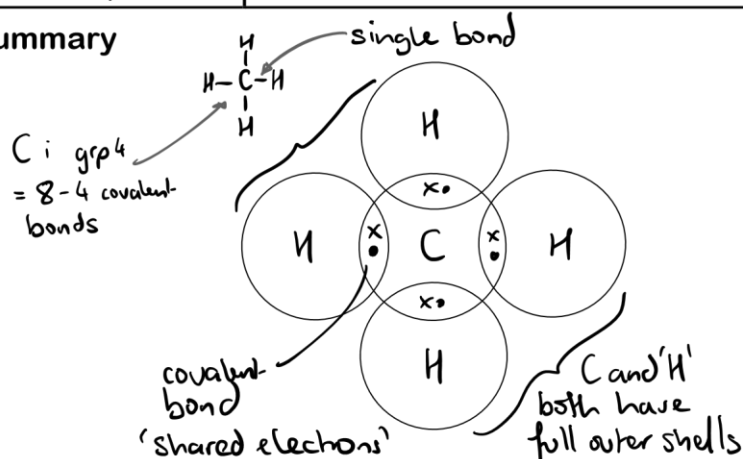 ummary
single bond
H
H-C-H
H
C i grp4
= 8-4 covalent
bonds
H
x•
H
x
•
C
x
•
H
x•
H
covalent
bond
'shared electrons'
C and 'H'
both have
full outer shells